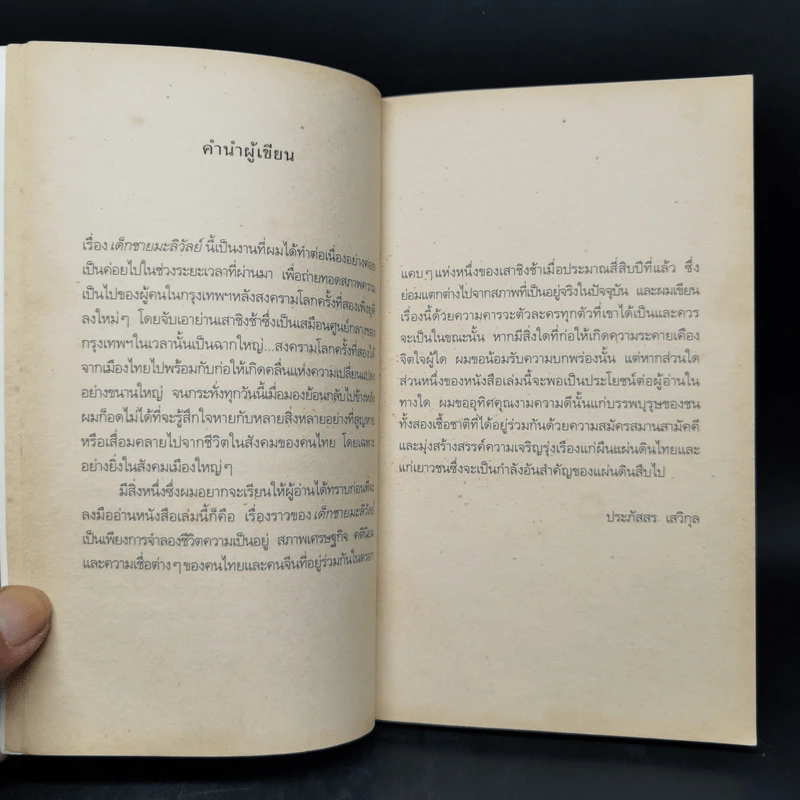 คำนำผู้เขียน
เรื่อง เด็กชายมะลิวัลย์ นี้เป็นงานที่ผมได้ทำต่อเนื่องอย่างค่อย
เป็นค่อยไปในช่วงระยะเวลาที่ผ่านมา เพื่อถ่ายทอดสภาพความ
เป็นไปของผู้คนในกรุงเทพฯหลังสงครามโลกครั้งที่สองเพิ่งยุติ
ลงใหม่ๆ โดยจับเอาย่านเสาชิงช้าซึ่งเป็นเสมือนศูนย์กลางของ
กรุงเทพฯในเวลานั้นเป็นฉากใหญ่...สงครามโลกครั้งที่สองได้
จากเมืองไทยไปพร้อมกับก่อให้เกิดคลื่นแห่งความเปลี่ยนแปลง
อย่างขนานใหญ่ จนกระทั่งทุกวันนี้เมื่อมองย้อนกลับไปข้างหลัง
ผมก็อดไม่ได้ที่จะรู้สึกใจหายกับหลายสิ่งหลายอย่างที่สูญหาย
หรือเสื่อมคลายไปจากชีวิตในสังคมของคนไทย โดยเฉพาะ
อย่างยิ่งในสังคมเมืองใหญ่ๆ
มีสิ่งหนึ่งซึ่งผมอยากจะเรียนให้ผู้อ่านได้ทราบก่อนที่จะ
ลงมืออ่านหนังสือเล่มนี้ก็คือ เรื่องราวของ เด็กชายมะลิวัลย์
เป็นเพียงการจำลองชีวิตความเป็นอยู่ สภาพเศรษฐกิจ คตินิยม
และความเชื่อต่างๆ ของคนไทยและคนจีนที่อยู่ร่วมกันในตรอก
แคบๆ แห่งหนึ่งของเสาชิงช้าเมื่อประมาณสี่สิบปีที่แล้ว ซึ่ง
ย่อมแตกต่างไปจากสภาพที่เป็นอยู่จริงในปัจจุบัน และผมเขียน
เรื่องนี้ด้วยความคารวะตัวละครทุกตัวที่เขาได้เป็นและควร
จะเป็นในขณะนั้น หากมีสิ่งใดที่ก่อให้เกิดความระคายเคือง
จิตใจผู้ใด ผมขอน้อมรับความบกพร่องนั้น แต่หากส่วนใด
ส่วนหนึ่งของหนังสือเล่มนี้จะพอเป็นประโยชน์ต่อผู้อ่านใน
ทางใด ผมขออุทิศคุณงามความดีนั้นแก่บรรพบุรุษของชน
ทั้งสองเชื้อชาติที่ได้อยู่ร่วมกันด้วยความสมัครสมานสามัคคี
และมุ่งสร้างสรรค์ความเจริญรุ่งเรืองแก่ผืนแผ่นดินไทยและ
แก่เยาวชนซึ่งจะเป็นกำลังอันสำคัญของแผ่นดินสืบไป
ประภัสสร เสวิกุล